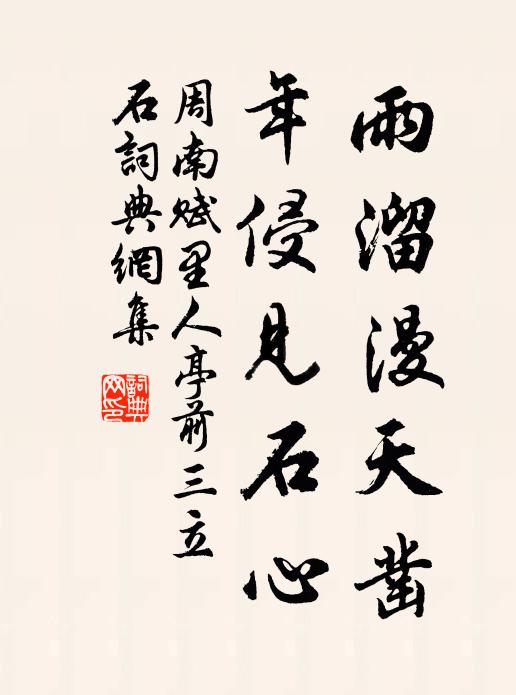 雨溜漫天凿
年侵見石心
周南赋里人亭前三立
石詞典網集
詞典
网印